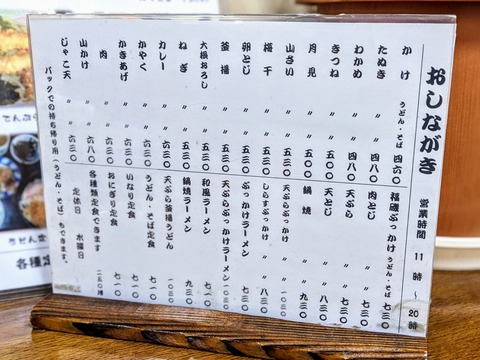 おしながき 営業時間 11時～20時
かけ うどん・そば 四六〇
たぬき 〃 〃 四八〇
わかめ 〃 〃 四八〇
きつね 〃 〃 五三〇
月見 〃 〃 五三〇
山さい 〃 〃 五三〇
梅干 〃 〃 五三〇
卵とじ 〃 〃 五三〇
釜揚 〃 〃 五三〇
大根おろし 〃 〃 五三〇
ねぎ 〃 〃 五三〇
カレー 〃 〃 六三〇
かやく 〃 〃 六三〇
かきあげ 〃 〃 六三〇
肉 〃 〃 六八〇
山かけ 〃 〃 六八〇
じゃこ天 〃 〃 六三〇
福磯ぶっかけ うどん・そば 七三〇
肉とじ 〃 〃 七三〇
天ぷら 〃 〃 七三〇
天とじ 〃 〃 七三〇
鍋焼 〃 〃 九三〇
天ぷらぶっかけ 〃 一〇三〇
しらすぶっかけ 〃 八三〇
ぶっかけラーメン 七三〇
天ぷらぶっかけラーメン 一〇三〇
和風ラーメン 七三〇
鍋焼ラーメン 九三〇
天ぷら釜揚うどん 一〇三〇
うどん・そば定食 七一〇
いなり定食 七一〇
おにぎり定食 七一〇
各種定食できます 二五〇増
定休日 水曜日
パックでの持ち帰り用(うどん・そば)もできます。
てんぷら
うどん定
各種定